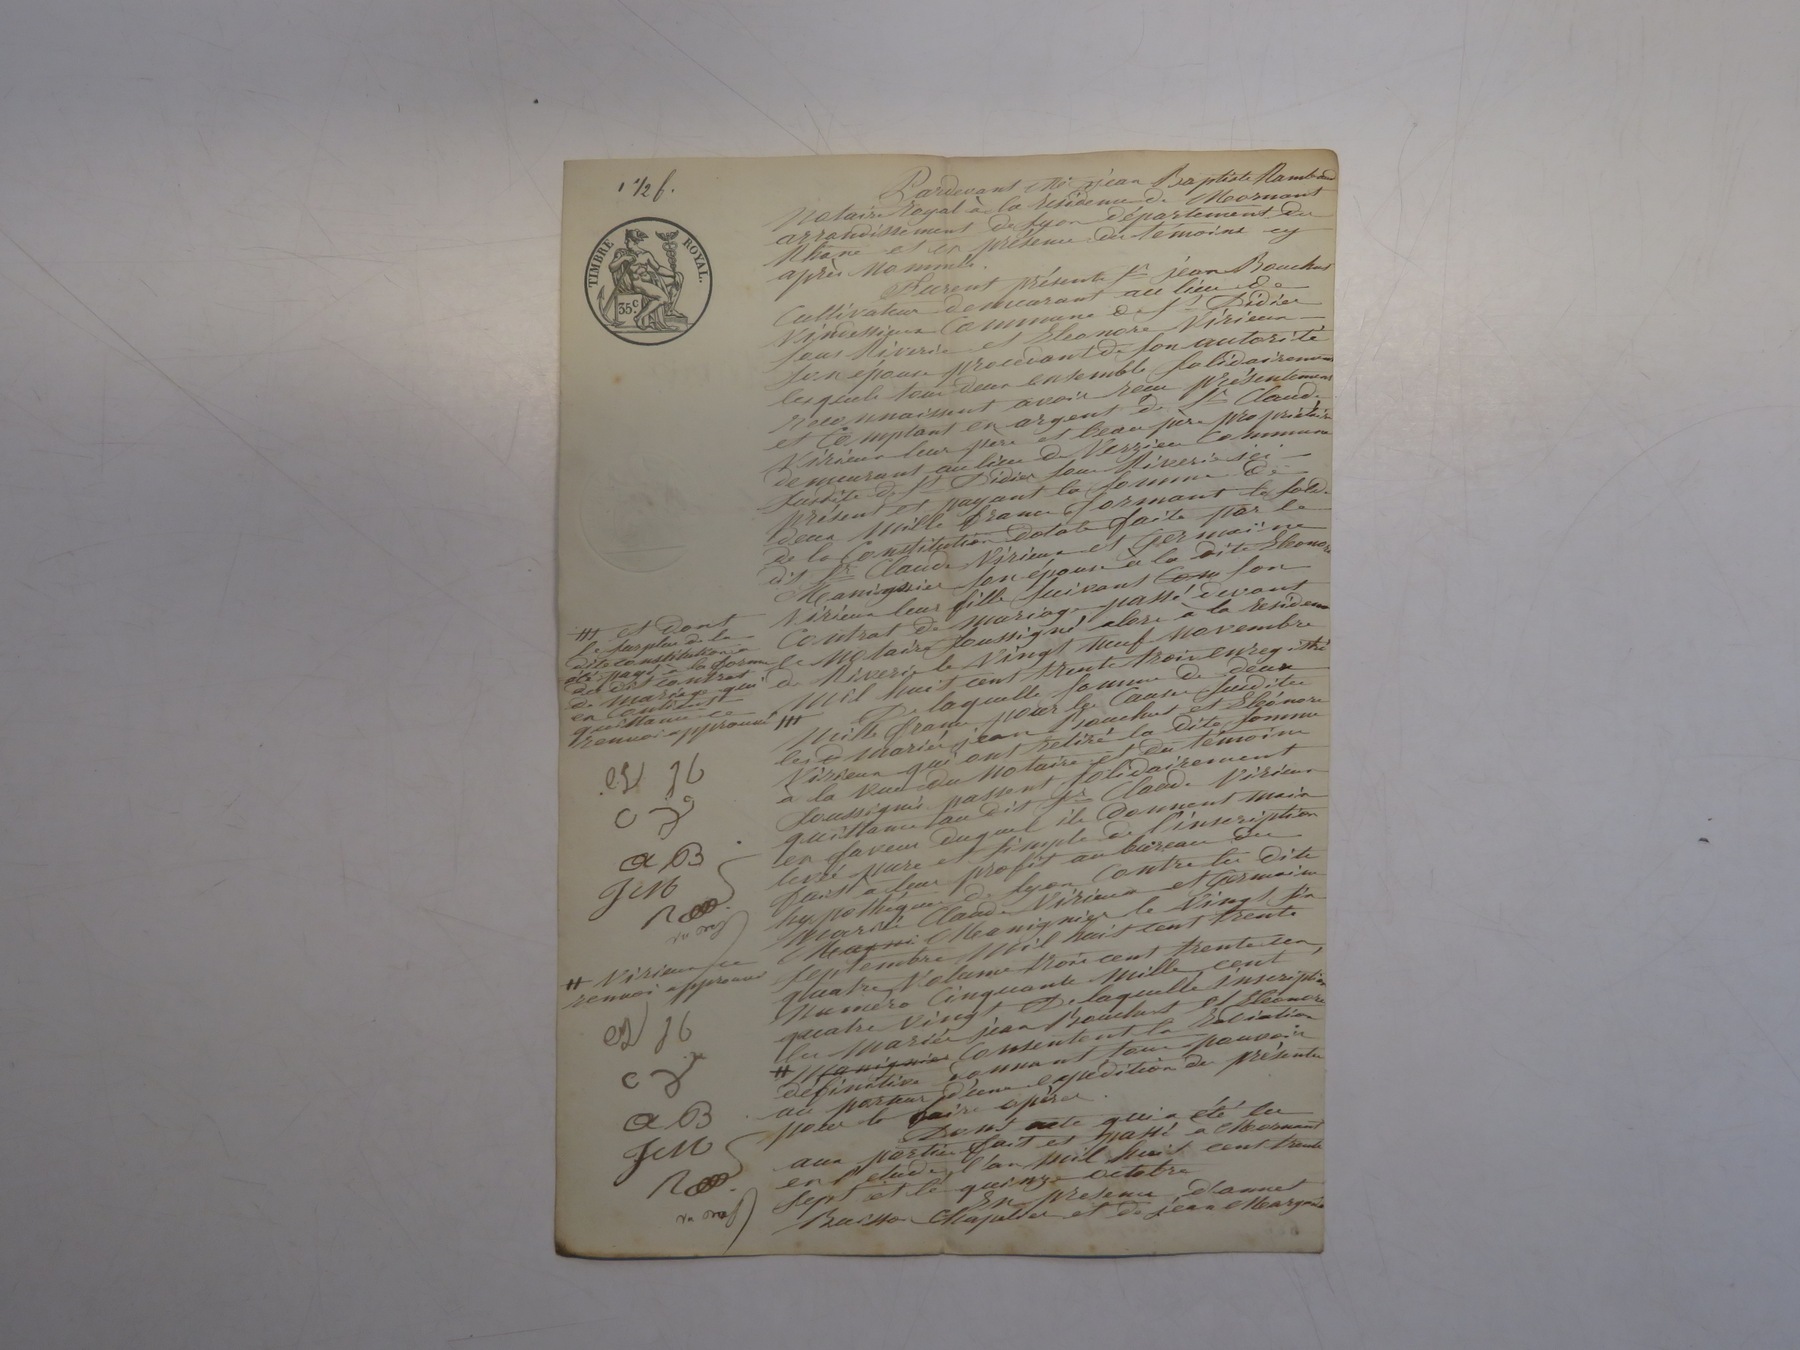 1 1/2 f.
TIMBRE ROYAL.
35 c
Pardevant Me jean Baptiste Rambaud
Notaire Royal à la résidence de Mornant
arrondissement de Lyon département du
Rhône et en présence des témoins cy
après Nommés.
Furent présents Sr jean Bouchut
Cultivateur demeurant au lieu de
Commune de St Didier
sous Riverie et Eléonore Virieux
son épouse procédant de son autorité
lesquels tous deux ensemble solidairement
reconnaissent avoir reçu présentement
et Comptant en argent de Sr Claude
Virieux leur père et beau père propriétaire
demeurant au lieu de Verzieu Commune
susdite de St Didier sous Riverie ici
présent et payant la somme de
deux Mille francs formant le solde
de la Constitution dotale faite par le
dit Sr Claude Virieux et Germaine
Manignier son épouse à la dite Eléonore
Virieux leur fille suivant Con son
Contrat de mariage passé devant
le Notaire soussigné alors à la résidence
de Riverie le Vingt neuf Novembre
Mil huit cent trente trois enregistré
# De laquelle somme de deux
Mille francs pour les Causes susdites
les d mariés jean Bouchut et Eléonore
Virieux qui ont retiré la dite somme
à la vue du Notaire et des témoins
soussignés passent solidairement
quittance au dit Sr Claude Virieux
en faveur duquel ils donnent main
levée pure et simple de l'inscription
faite à leur profit au bureau des
hypothèques de Lyon Contre les dits
Mariés Claude Virieux et Germaine
Manignier le Vingt six
Septembre Mil huit cent trente
quatre Volume trois cent trente un,
Numéro Cinquante Mille cent
quatre Vingt De laquelle inscription
les Mariés jean Bouchut et Eléonore
# Manignier Consentent la Radiation
définitive donnant tous pouvoir
au porteur d'une expédition des présentes
pour le faire opérer.
Dont acte qui a été lu
aux parties fait et passé à Mornant
en l'étude, l'an Mil huit cent trente
sept et le quinze octobre
En présence d'annet
Buisson Chapelier et de jean Margand
# et dont
le surplus de la
dite constitution a
été payé à la forme
du dit contrat
de mariage qui
en contient
quittance ce
renvoi approuvé
JB
C
a B
JCM
# Virieux ce
renvoi approuvé
JB
C
a B
JCM